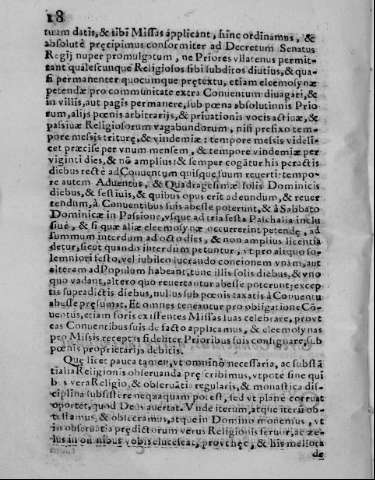 18
tuam datis, & sibi Missas applicant, hinc ordinamus, &
absolutè præcipimus conformiter ad Decretum Senatus
Regij nuper promulgatum, ne Priores vllatenus permit-
tant qualescunque Religiosos sibi subditos diutius, & qua-
si permanenter quocumque prætextu, etiam eleemosynæ
petendæ pro communitate extra Conuentum diuagari, &
in villis, aut pagis permanere, sub pœna absolutionis Prio
rum, alijs pœnis arbitrarijs, & priuationis vocis actiuæ, &
passiuæ Religiosorum vagabundorum, nisi prefixo tem-
pore messis triturę, & vindemiæ: tempore messis videli-
cet præcise per vnum mensem, & tempore vindemiæ per
viginti dies, & nõ amplius: & semper cogãtur his peractis
diebus rectè ad Conuentum quisque suum reuerti: tempo-
re autem Aduentus, & Quadragesimæ solis Dominicis
diebus, & festiuis, & quibus opus erit adeundum, & reuer
tendum, à Conuentibus suis abesse poterunt, & à Sabbato
Dominicæ in Passione, vsque ad tria festa Paschalia inclu
siuè, & si quæ aliæ eleemosynæ occurrerint petendę, ad
summum interdum ad octo dies, & non amplius licentia
detur, sicut quando interdum petuntur, vt pro aliquo so-
lemniori festo, vel iubileo lucrando concionem vnam, aut
alteram ad Populum habeant, tunc illis solis diebus, & vno
quo vadant, altero quo reuertantur abesse poterunt; excep
tis supradictis diebus, nullus sub pœnis taxatis à Conuentu
abesse pręsumat. Et omnes teneantur pro obligatione Cõ-
uentus, etiam foris existentes Missas suas celebrare, prout
eas Conuentibus suis de facto applicamus, & eleemosynas
pro Missis receptas fideliter Prioribus suis consignare, sub
pœnis proprietarijs debitis.
Quę licet pauca tamen, vt omninò necessaria, ac substã
tialia Religionis obseruanda pręscribimus, vtpote sine qui
bus vera Religio, & obseruãtia regularis, & monastica dis-
ciplina subsistere nequaquam potest, sed vt planè corruat
oportet, quod Deus auertat. Vnde iterum, atque iterũ ob-
testamus, & obsecramus, atque in Domino monemus, vt
in obseruatia prędictorum verus Religionis feruor, ac ze-
lus in omnibus vobis elucescat, prouthęc, & his meliora
de